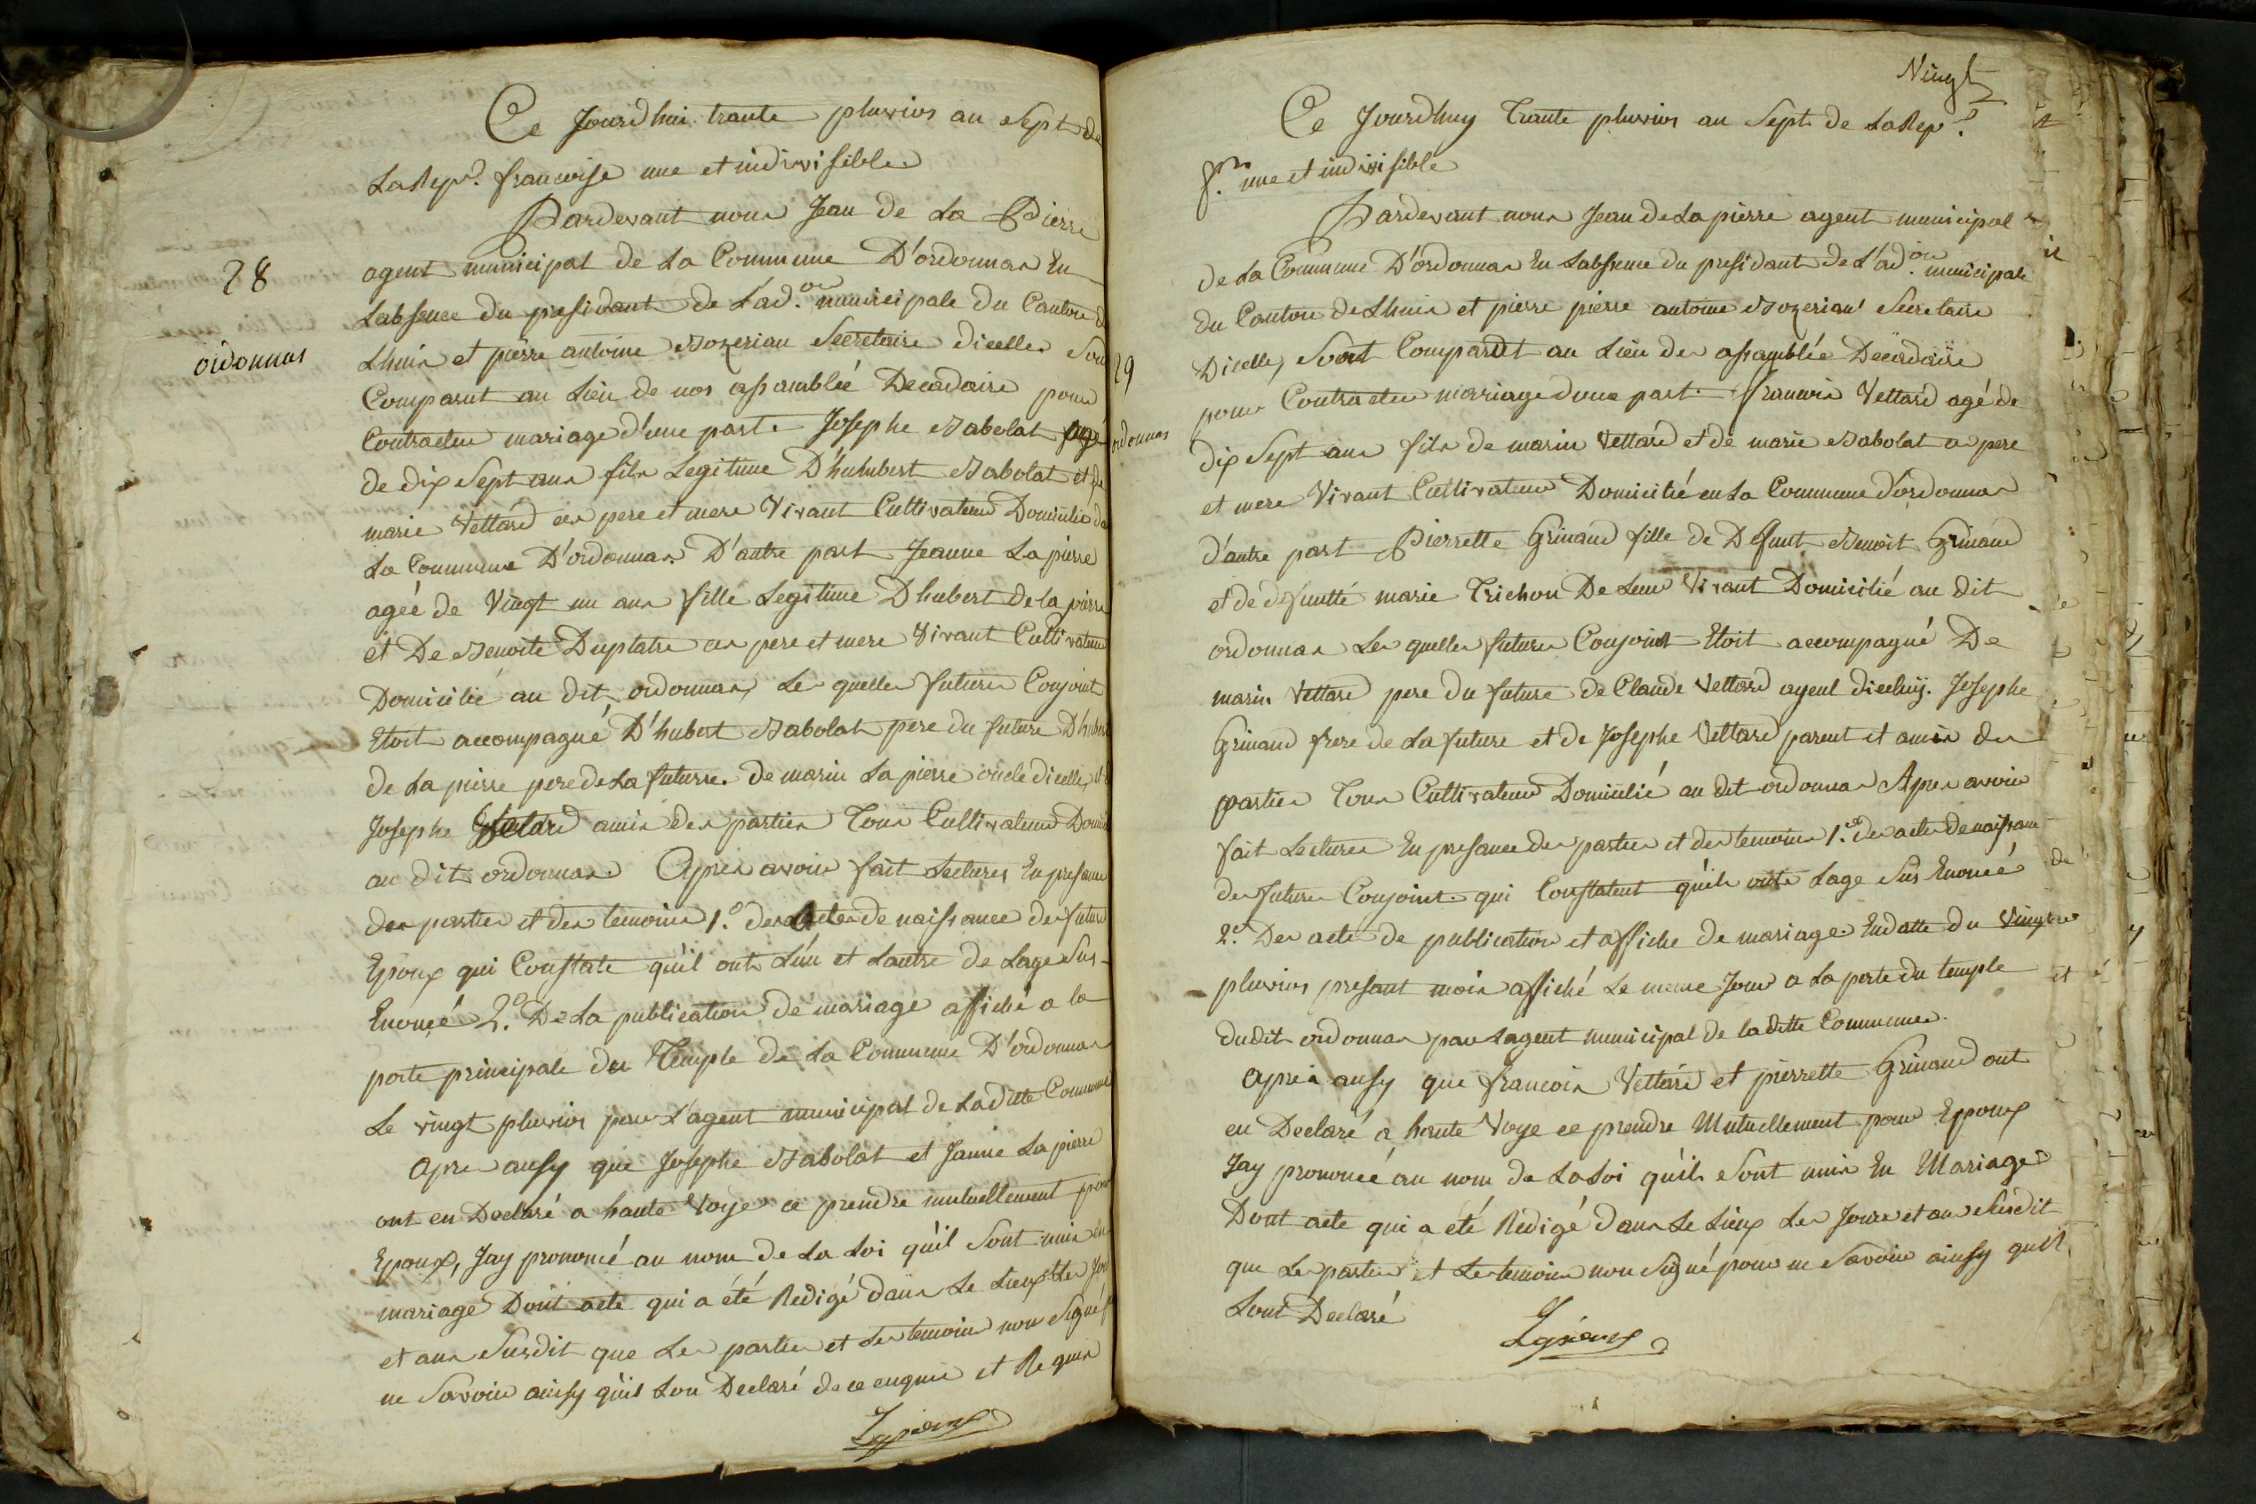 Ce Jourdhui trante pluvios an sept de
La Rep.e francoise une et indivisible
Pardevant nous Jean de La Pierre
28
agent municipal de La Commune D'ordonnas En
Labsence du presidant de L'ad.on municipale du Canton de
ordonnas
Lhuis et pierre antoine Bozerian Secretaire dicelle, Son
Comparut au Lieu de nos assamblée Decadaire pour
Contracter mariage d'une part Josephe Babolat agé
de dix Sept ans fils Legitime D'huhubert Babolat et de
marie Vettard ses pere et mere Vivant Cultivateur Domicilié de
La Commune D'ordonnas. D'autre part Jeanne La pierre
ageé de Vingt un ans fille Legitime Dhubert de la pierre
et De Benoite Duplatre ses pere et mere Vivant Cultivateur
Domicilié au dit ordonnas, Les quelles futures Conjoint
Etoit accompagné D'hubert Babolat pere du future D'hubert
de La pierre pere de La future. de marin La pierre oncle dicelle, et de
Josephe Vettard amis des parties Tous Cultivateur Domicilié
au dit ordonnas. Apres avoir fait Lectures En presance
des parties et des temoins 1.o des Actes de naissance des future
Epoux qui Constate quil ont L'un et Lautre de Lage Sus-
Enoncé 2.o De La publication de mariage affiché a la
porte principale du Temple de La Commune D'ordonnas
Le vingt pluvios par L'agent municipal de La ditte Commune
Apres ausy que Josephe Babolat et Janne La pierre
ont en Declaré a haute Voye ce prendre mutuellement pour
Epoux, Jay prononcé au nom de La Loi quil Sont unis en
mariage Dont acte qui a été Redigé dans Le Lieux Les Jour
et ans Susdit que Les parties et Les temoins non Signé pour
ne Savoir ainsy quil Lon Declaré de ce enquis et Requis
Lapierre
Vingt
Ce Jourdhuy Trante pluvios an Sept de La Rep.e
f.se une et indivisible
Pardevant nous Jean de La pierre agent municipal
de La Commune D'ordonnas En Labsence du presidant de L'ad.on municipale
du Canton de Lhuis et pierre pierre antoine Bozerian Secretaire
29
Dicelle, Sont Comparut au Lieu des assamblée Decadaire
ordonnas
pour Contracter mariage d'une part francois Vettard agé de
dix Sept ans fils de marin Vettard et de marie Babolat a pere
et mere Vivant Cultivateur Domicilié en La Commune d'ordonnas
d'autre part Pierrette Grinand fille de Defunt Benoit Grinand
et de defuntte marie Trichon De Leur Vivant Domicilié au dit
ordonnas Les quelles futures Conjoint Etoit accompagné De
marin Vettard pere du future de Claude Vettard ayeul diceluÿ. Josephe
Grinand frere de La future et de Josephe Vettard parent et amis des
parties Tous Cultivateur Domicilié au dit ordonnas Apres avoir
fait Lectures En presance des parties et des temoins 1.o des actes de naissance
des futures Conjoint qui Constatent quils onts Lage Sus Enoncé
2.o Des acte de publication et affiche de mariage En datte du Vingt
pluvios presant mois affiché Le meme Jour a La porte du temple
dudit ordonnas par Lagent municipal de la ditte Commune.
Apres ausy que francois Vettard et pierrette Grinand ont
en Declaré a haute Voye ce prendre Mutuellement pour Epoux
Jay prononcé au nom de La Loi quils Sont unis En Mariage
Dont acte qui a été Redigé dans Le Lieux Les Jour et an Susdit
que Les parties et Les temoins non Signé pour ne Savoir ainsy quil
Lont Declaré
Lapierre